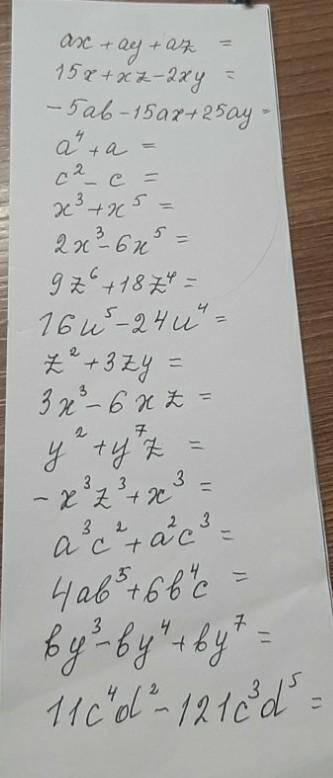 ax + ay + az =
15x + xz - 2xy =
-5ab - 15ax + 25ay =
a⁴ + a =
c² - c =
x³ + x⁵ =
2x³ - 6x⁵ =
9z⁶ + 18z⁴ =
16u⁵ - 24u⁴ =
z² + 3zy =
3x³ - 6xz =
y² + y⁷z =
-x³z³ + x³ =
a³c² + a²c³ =
4ab⁵ + 6b⁴c =
by³ - by⁴ + by⁷ =
11c⁴d² - 121c³d⁵ =